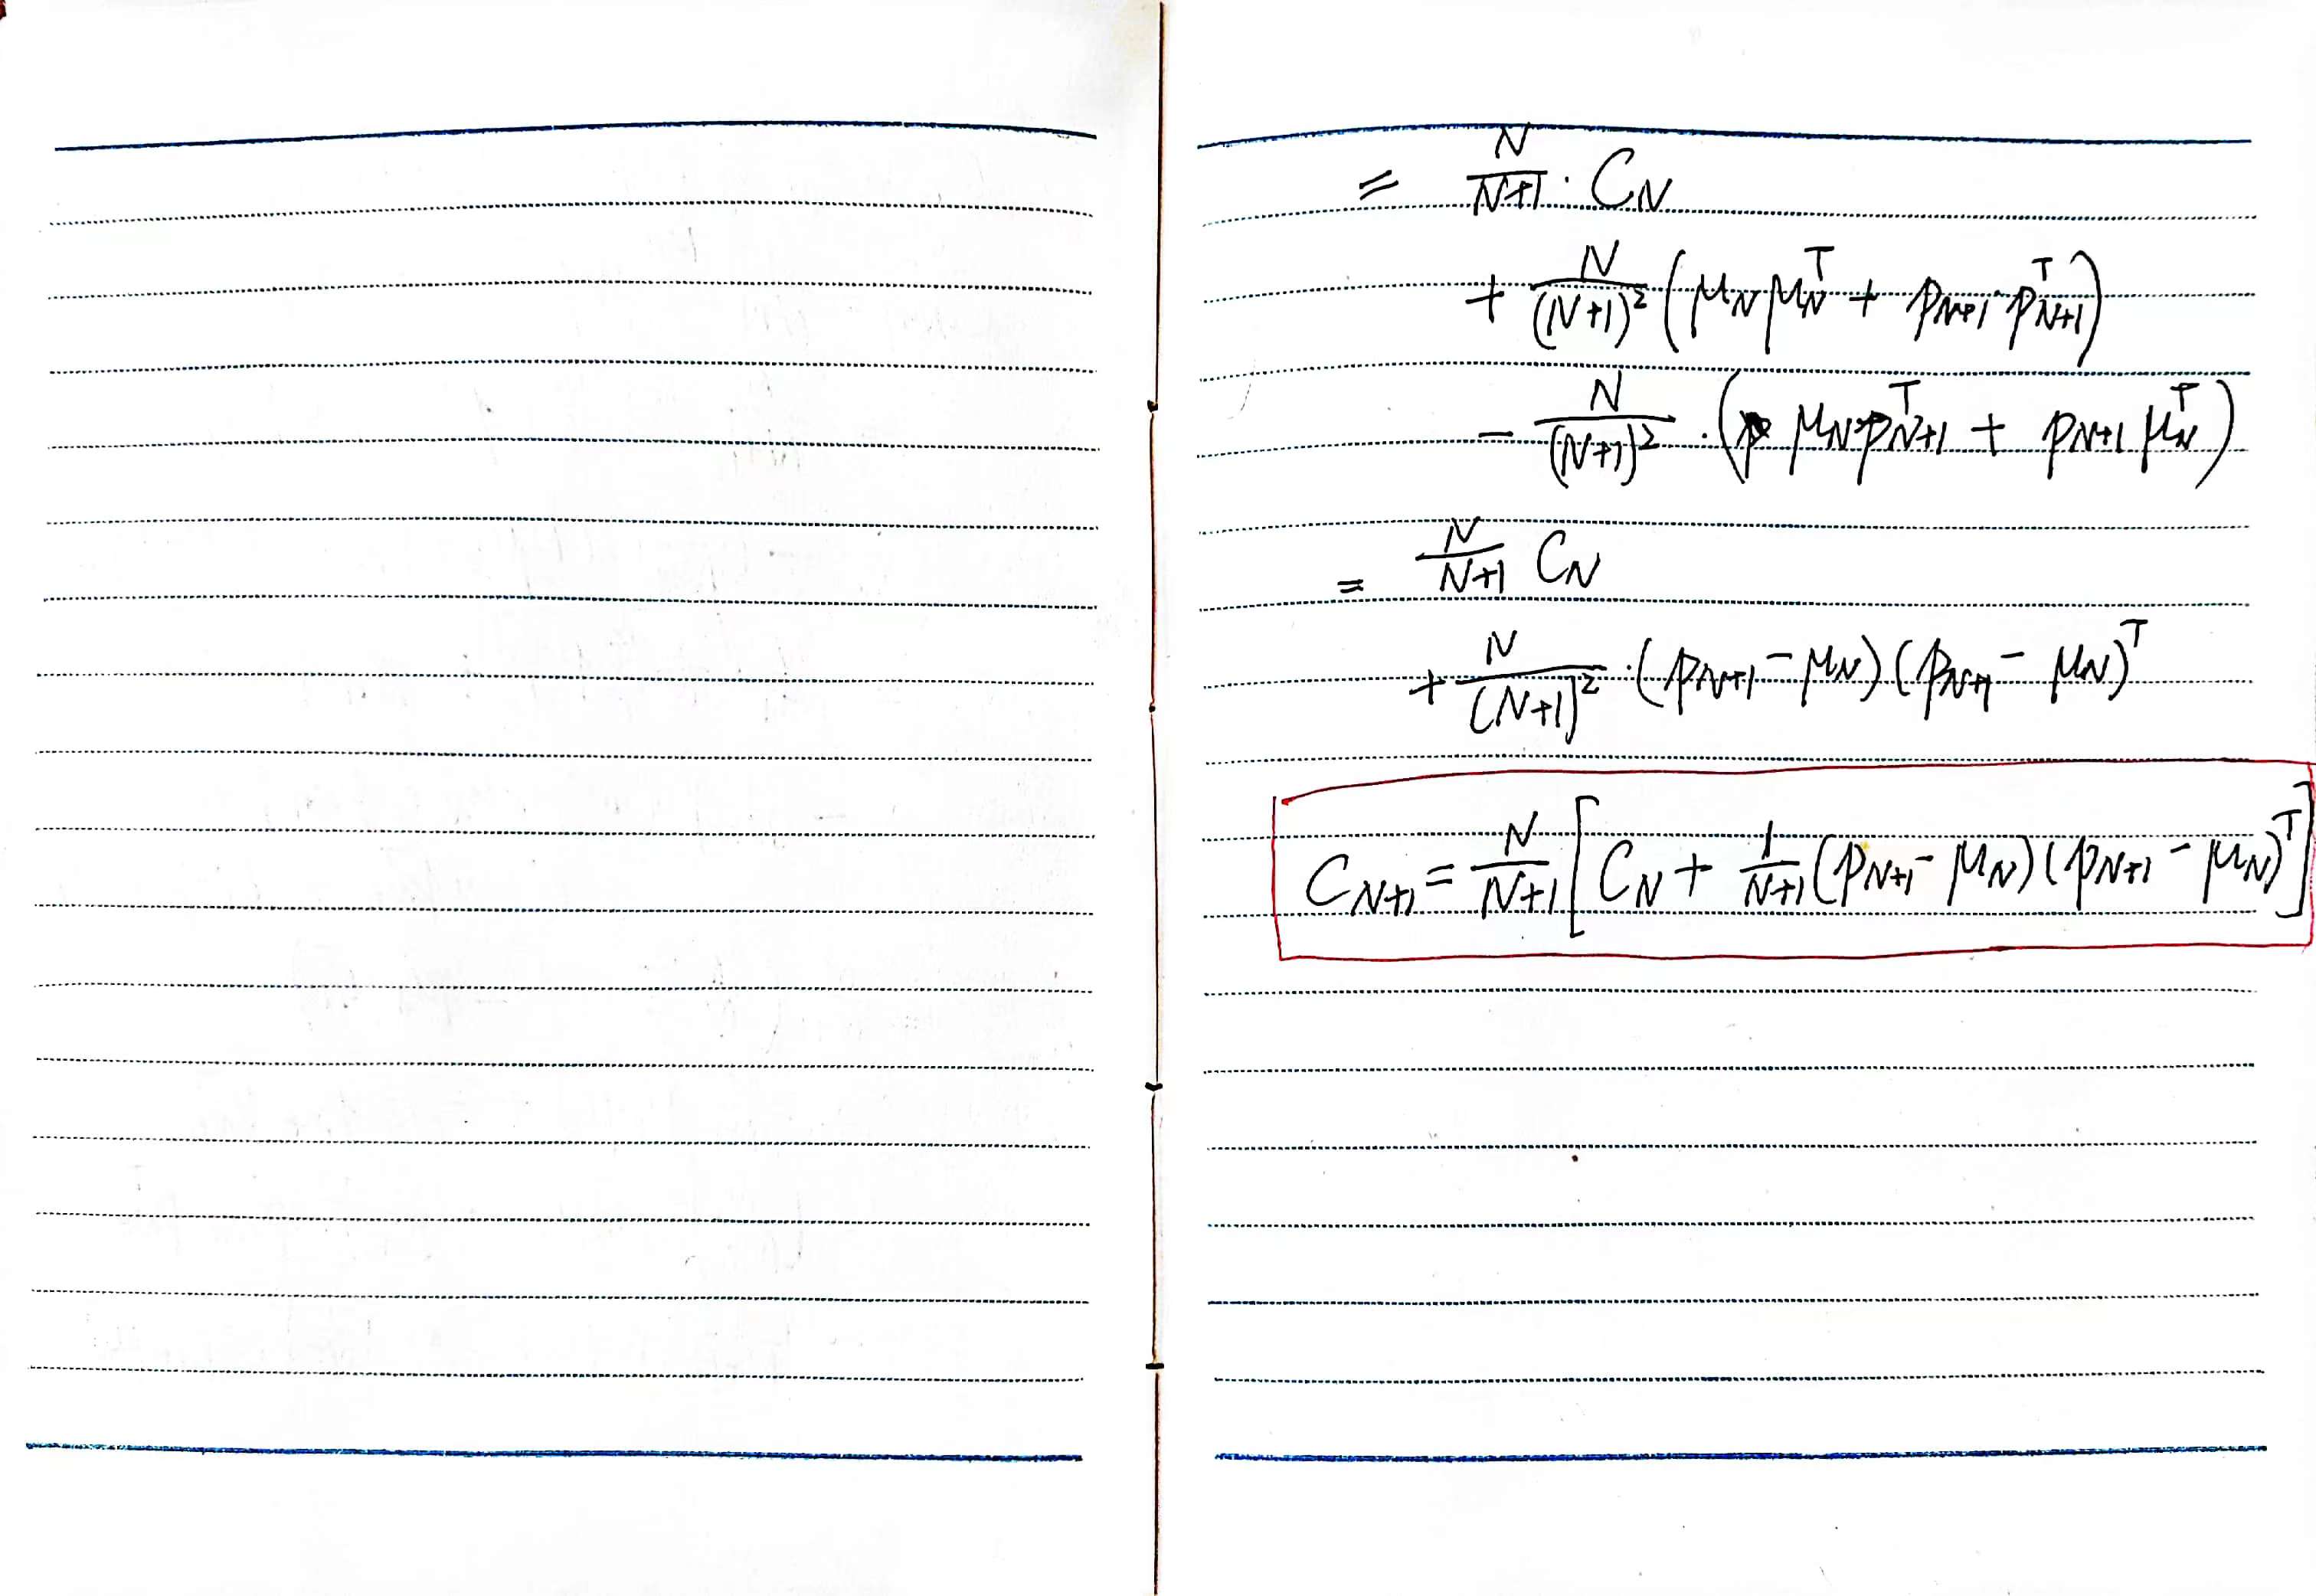 = \frac{N}{N+1} \cdot C_N
+ \frac{N}{(N+1)^2} (\mu_N \mu_N^T + p_{N+1} \cdot p_{N+1}^T)
- \frac{N}{(N+1)^2} \cdot (\mu_N p_{N+1}^T + p_{N+1} \mu_N^T)
= \frac{N}{N+1} C_N
+ \frac{N}{(N+1)^2} \cdot (p_{N+1} - \mu_N)(p_{N+1} - \mu_N)^T
C_{N+1} = \frac{N}{N+1} [ C_N + \frac{1}{N+1} (p_{N+1} - \mu_N)(p_{N+1} - \mu_N)^T ]